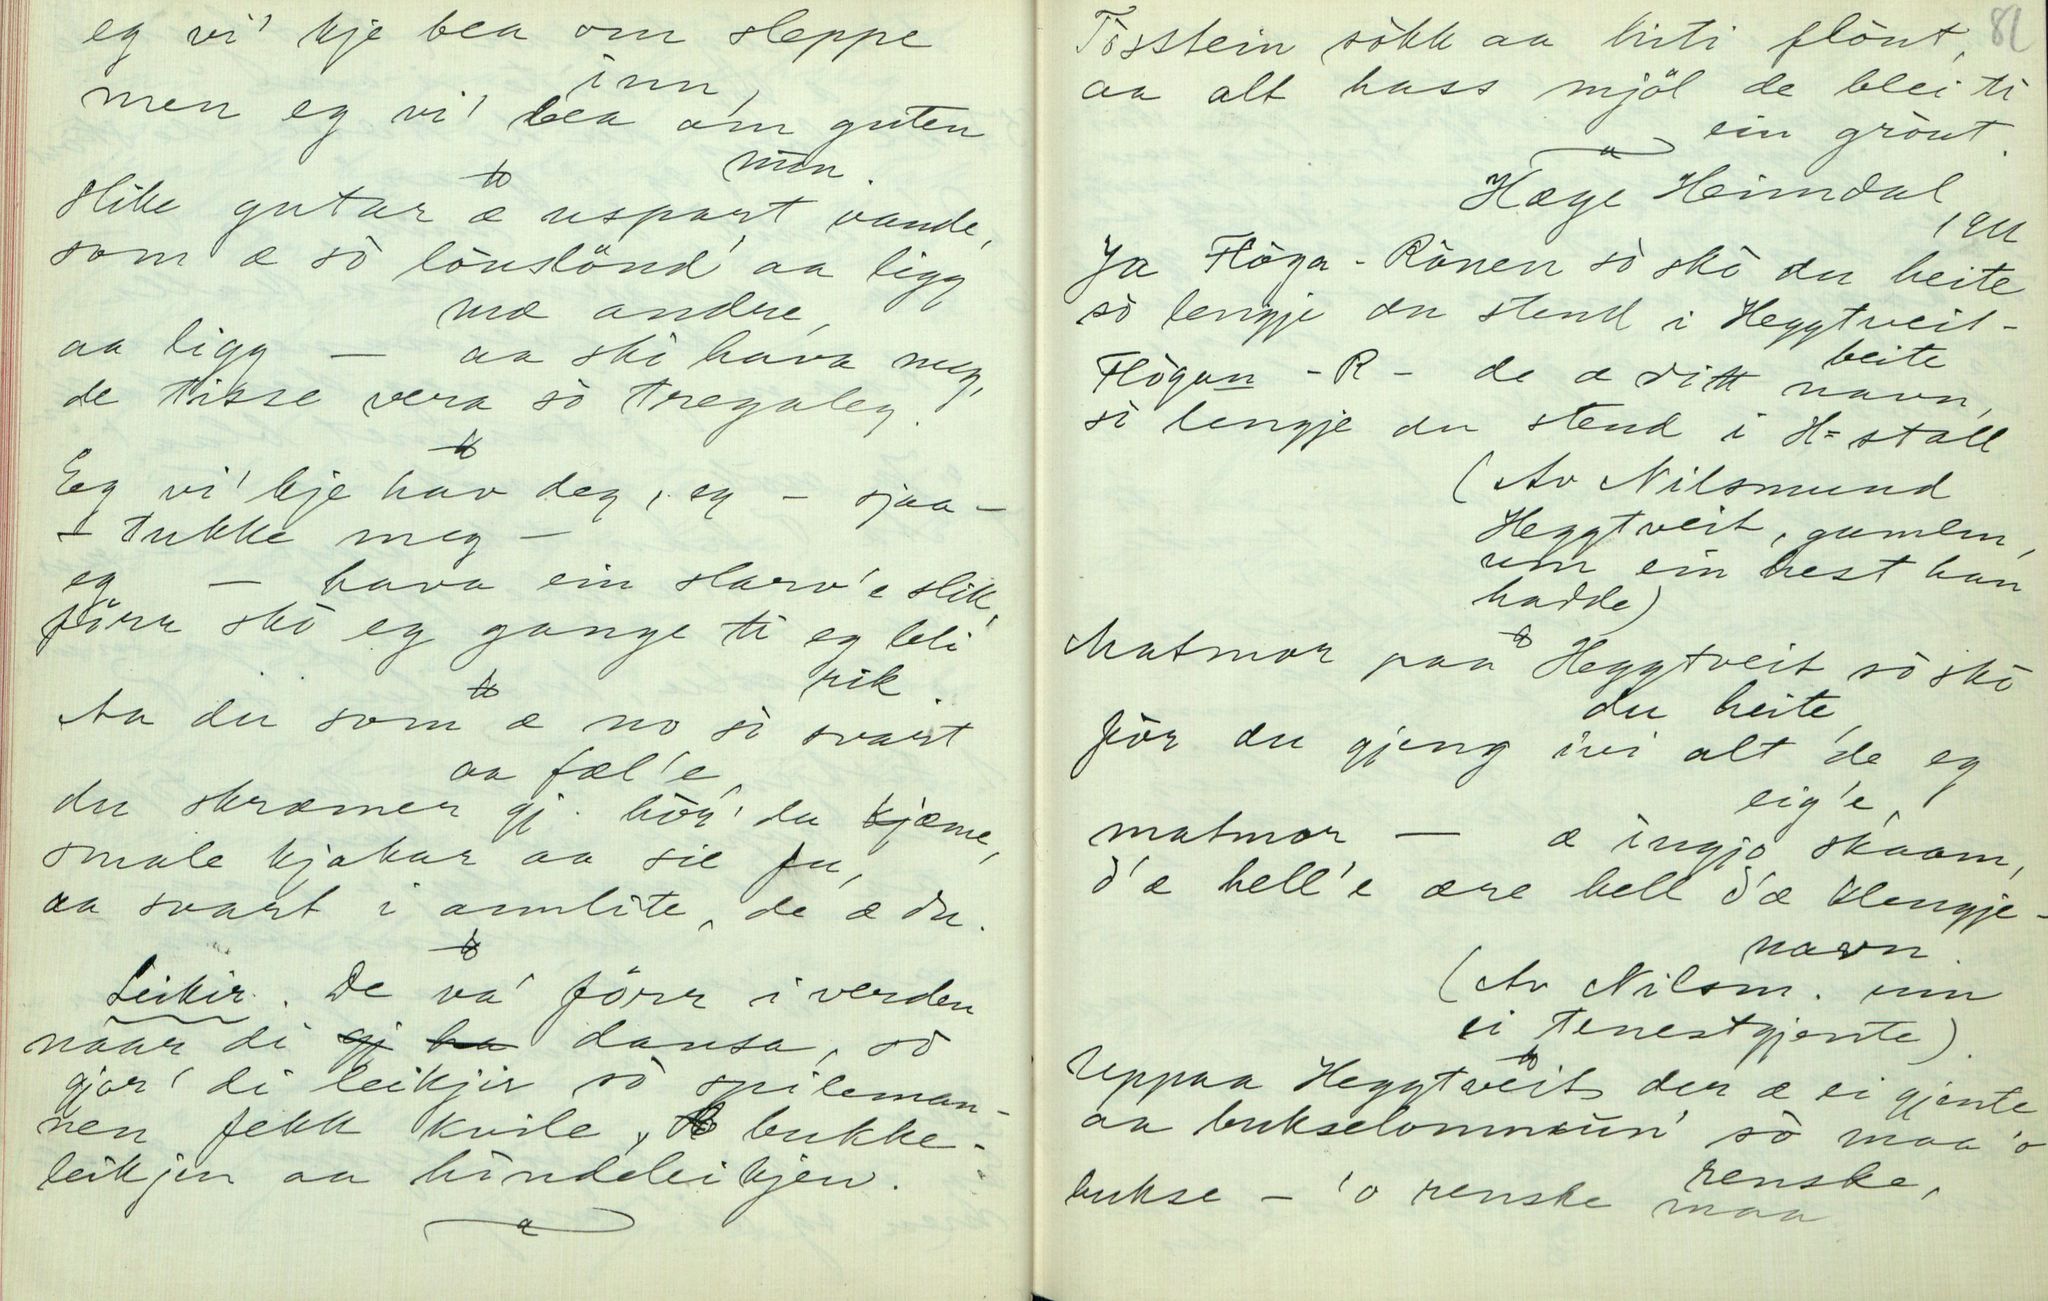 eg vi' kje bea om sleppe
inn,
men eg vi' bea om guten
min.
Slike gutar æ uspart vande,
som æ sò lönslönd' aa ligg
mæ andre,
aa ligg — aa skò hava meg,
de tisse vera sò tregaleg.
Eg vi' kje hav deg, eg – sjaa –
– tukke meg –
eg – hava ein slarv'e slik,
förr skò eg gange ti eg bli
rik.
Aa du som æ no sò svart
aa fæl'e,
du skræmer gj. hòr' du kjæme,
smale kjakar aa sie fu,
aa svart i annlite, de æ du.
Leikir. De va' förr i verden
naar di gj ha dansa, sò
gjor' di leikjir sò spileman-
nen fekk kvile, bukke-
leikjen aa hindeleikjen.
81
Tòsstein sòkk aa kirti flòut,
aa alt hass mjöl de blei ti
ein gròut.
Hæge Heimdal
1911
Ja Flòga-Rònen sò skò du heite
sò lengje du stend i Heggtveit-
beite
Flògan -R- de æ ditt navn,
sò lengje du stend i H= stall
(Av Nilsmund
Heggtveit, gamlen,
um ein hest han
hadde)
Matmor paa Heggtveit sò skò
du heite,
för du gjeng ivi alt de eg
eig'e,
matmor — æ ingjo skaam,
d'æ hell'e ære hell d'æ klengje-
navn.
(Av Nilsm. um
ei tenestgjente).
Uppaa Heggtveit der æ ei gjente
aa bukselommun' sò maa 'o
renske,
bukse – 'o renske maa